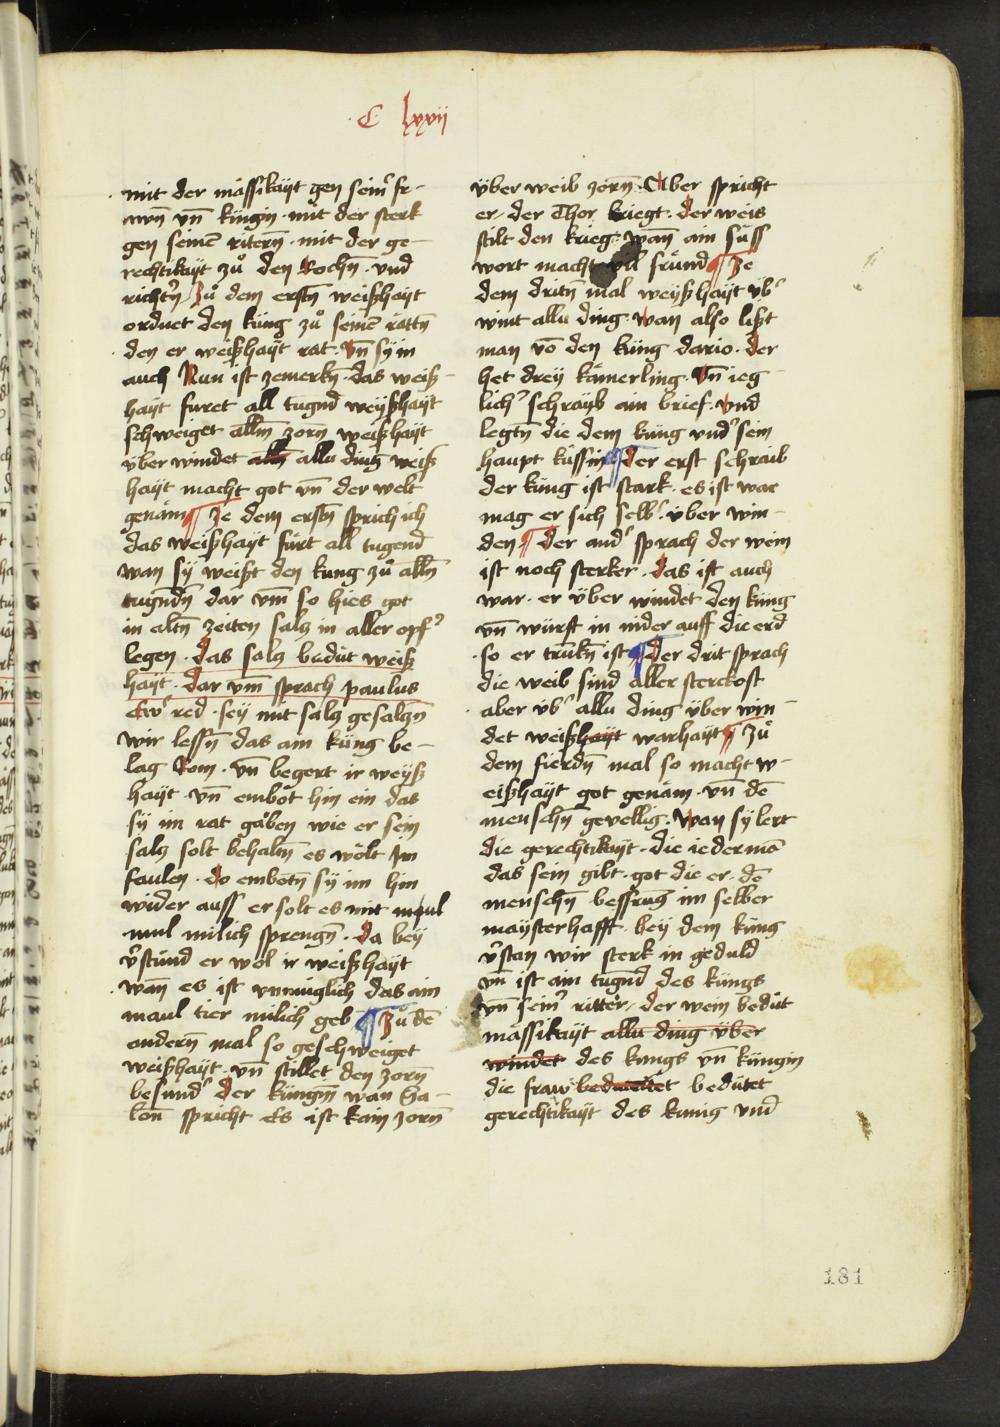 C lxxvii
mit der mässikaÿt gen sein͛ fr-
awn̄ vn̄ kingin · mit der sterk
gen seinē ritern̄ · mit der ge-
rechtikaÿt zů den Rochn̄ · vnd
richt͛n / Zů dem erstn̄ weißhaÿt
ordnet den küng zů seinē rättn̄
den er weißhaÿt rat · Vn̄ sÿ in
auch Nun ist zemerkn̄ · das weiß-
haÿt furet all tugnd weÿßhaÿt
schweiget alln̄ zorn weißhaÿt
über windet alln̄ allu ding weiß
haÿt macht got vn̄ der welt
genäm ¶ Ze dem erstn̄ sprich ich
das weißhaÿt fürt all tugend
wan sÿ weißt den kung zů alln̄
tugndn̄ dar vm̄ so hies got
in altn̄ zeiten salz in aller opf͛
legen · das salz bedüt weiß
haÿt · dar vm̄ sprach paulus
Ew͛ red · seÿ mit salz gesalzn̄
wir lessn̄ das ain küng be-
lag Rom · vn̄ begert ir weÿß
haÿt · vn̄ embot hin ein das
sÿ im rat gäben wie er sein
salz solt behaltn̄ es wölt Im
faulen · do embotn̄ sÿ im hin
wider auss er solt es mit maul
mul milich sprengn̄ · da beÿ
v͛stünd er wol ir weißhaÿt
wan̄ es ist vnmüglich das ain
maul tier milich geb ¶ Zů dē
andern̄ mal so geschweiget
weißhaÿt · vn̄ stillet den zorn̄
besund͛ der küngn̄ wan Sa-
lon̄ spricht Es ist kain zorn̄
über weib zorn̄ · Aber spricht
er · der Thor kriegt · der weis
stilt den krieg · wan̄ ain süss
wort macht vil fründ ¶ Ze
dem dritn̄ mal weÿßhaÿt üb͛
wint allu ding · wan also lißt
man vō den küng dario · der
het dreÿ kämerling · Vn̄ ieg-
lich͛ schraÿb ain brief · vnd
legtn̄ die dem küng vnd͛ sein
haupt küssin ¶ der erst schraib
der küng ist stark · es ist war
mag er sich selb͛ über win-
den ¶ Der and͛ sprach der wein
ist noch sterker · das ist auch
war · er über windet den küng
vn̄ würft in nider auff die erd
so er trükn̄ ist ¶ Der drit sprach
die weib sind aller sterckost
aber üb͛ allu ding über win-
det weißhaÿt warhaÿt ¶ Zů
dem fierdn̄ mal so macht w-
eißhaÿt got genäm · vn̄ dē
menschn̄ gevellig · Wan sÿ lert
die gerechtikaÿt · die iederman̄
das sein gibt · got die er · dē
menschn̄ bessrung im selber
maÿsterhafft · beÿ dem küng
v͛stan wir sterk in geduld
vn̄ ist ain tugnd des küngs
vn̄ sein͛ ritter · der wein bedüt
mässikaÿt allu ding über
windet des kungs vn küngin
die fraw beduetet bedütet
gerechtikaÿt des kunig vnd
181